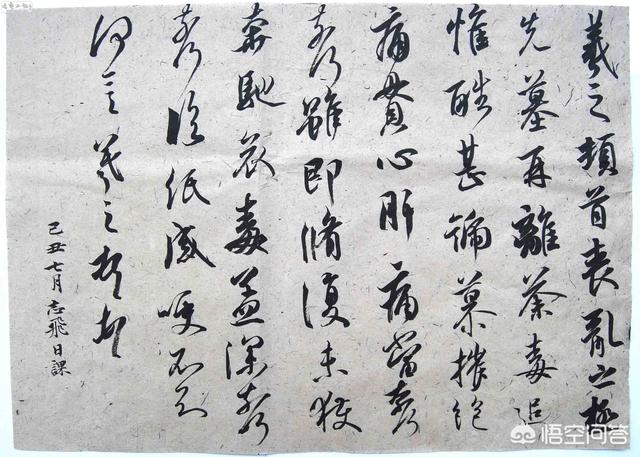 羲之頓首喪亂之極
先墓再離荼毒追
惟酷甚號慕摧絕
痛貫心肝痛當奈何
奈何雖即脩復未獲
奔馳哀毒益深奈何
奈何臨紙感哽不知
何言羲之頓首頓首
己丑七月志飛日課
悟空问答